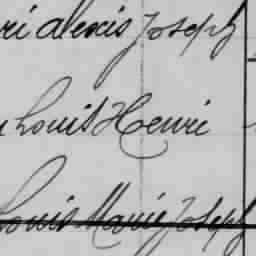 ri Alexis Joseph
Louis Henri
Louis Marie Joseph